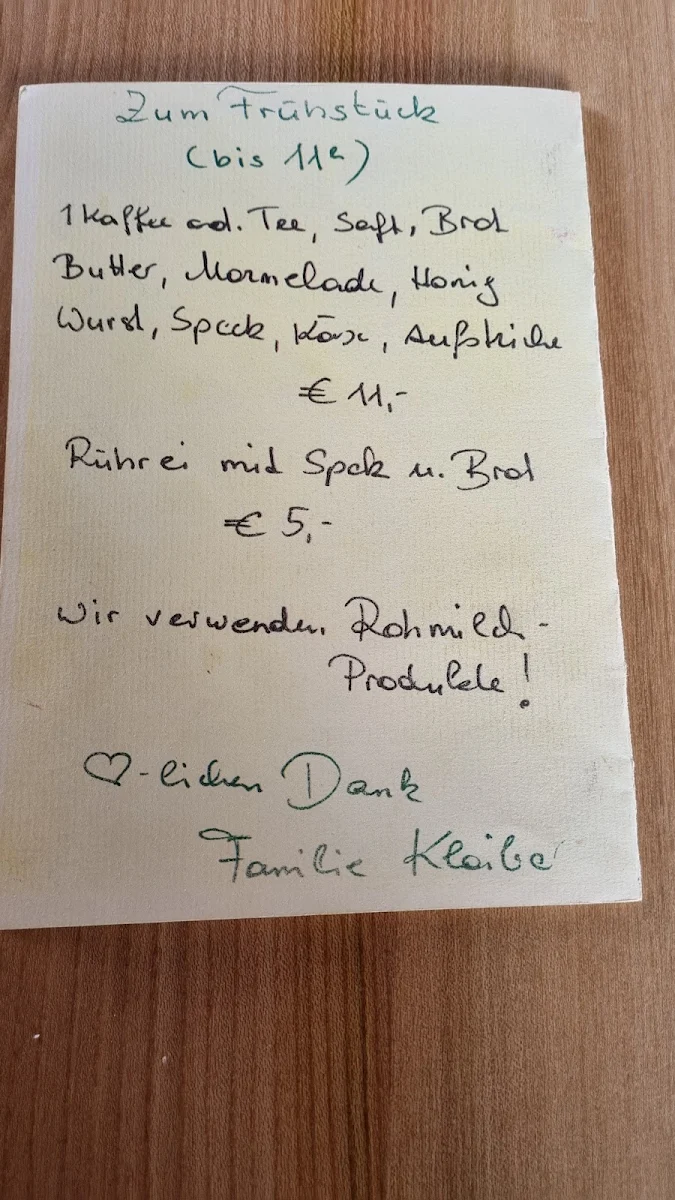 Zum Frühstück
(bis 11h)
1 Kaffee od. Tee, Saft, Brot
Butter, Marmelade, Honig
Wurst, Speck, Käse, Aufstriche
€ 11,-
Rührei mit Speck u. Brot
€ 5,-
Wir verwenden Rohmilch-
Produkte!
♡-lichen Dank
Familie